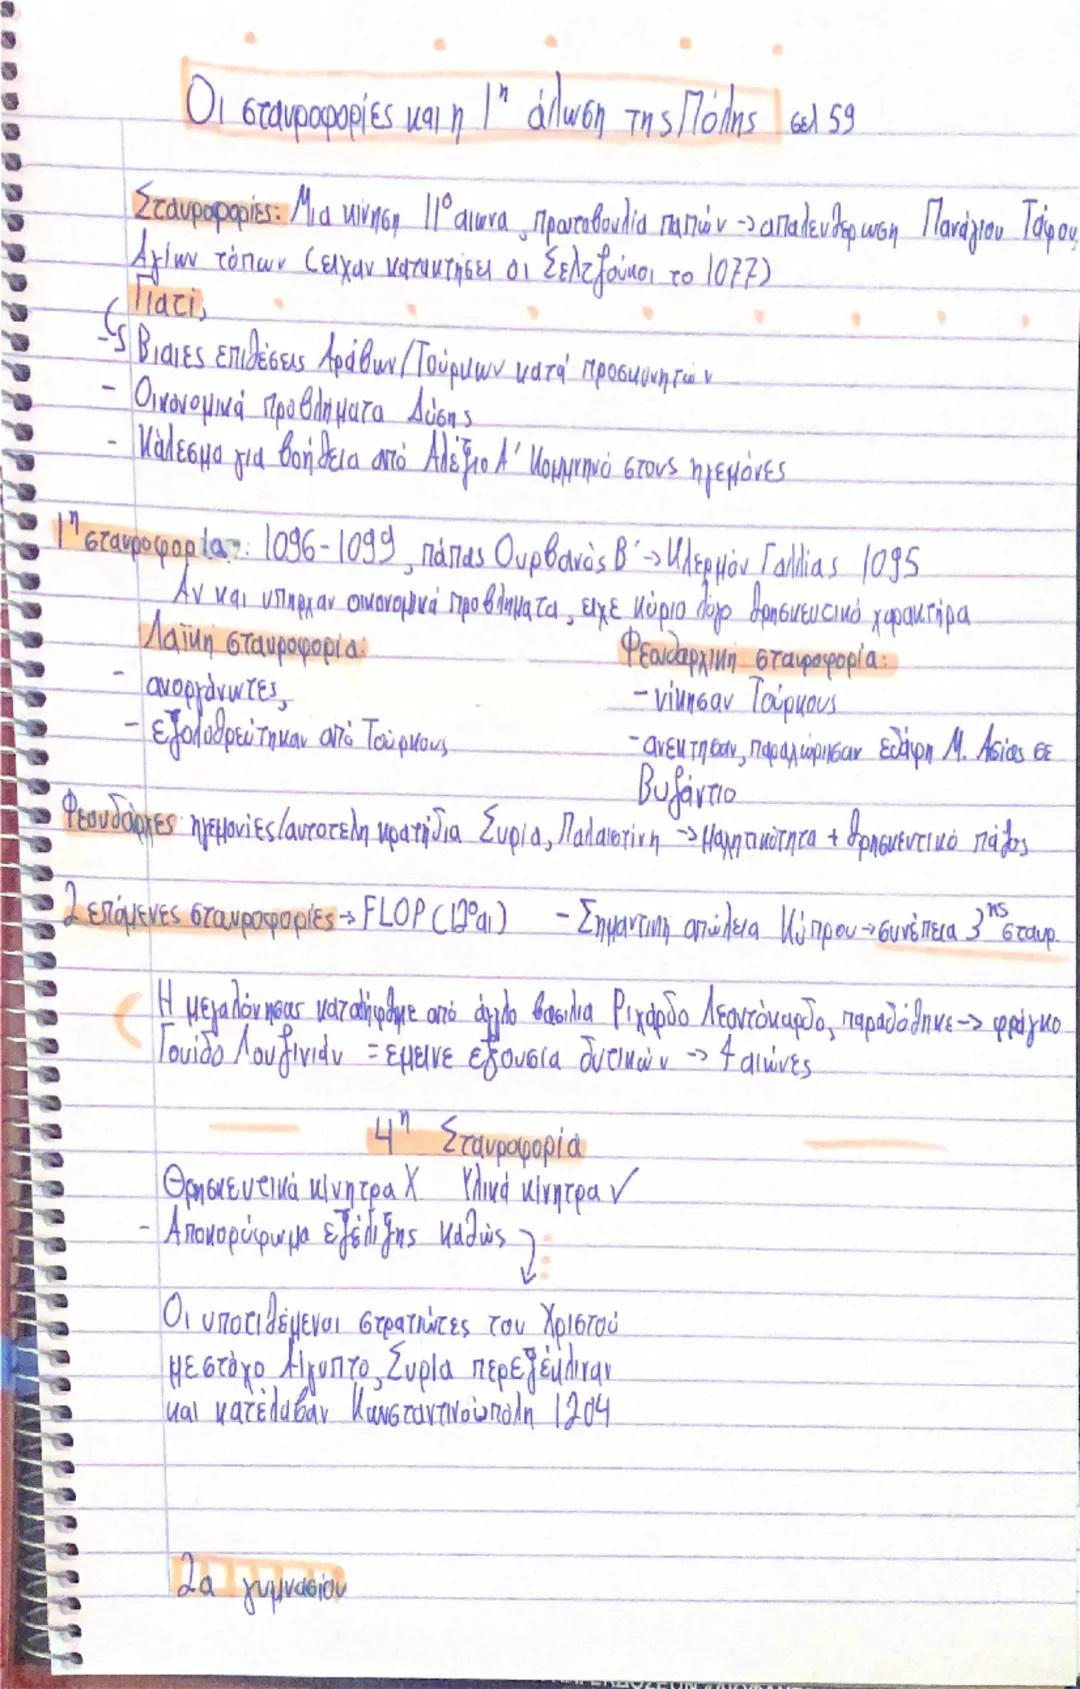 Οι σταυροφορίες και η 1η άλωση της Πόλης σελ 59
Σταυροφορίες: Μια κίνηση 11ο αιωνα, πρωτοβουλία παπών -> απαλευθερωση Πανάγιου Τάφου,
Αγίων τόπων (ειχαν κατακτήσει οι Σελτζούκοι το 1077)
Γιατί;
- Βιαιες επιθέσεις Αράβων/Τούρκων κατά προσκυνητών
- Οικονομικά προβλήματα Δύσης
- Κάλεσμα για βοήθεια από Αλέξιο Α' Κομνηνό στους ηγεμόνες
1η σταυροφορία: 1096-1099, πάπας Ουρβανός Β' -> Κλερμόν Γαλλίας 1095
Αν και υπηρχαν οικονομικά προβλήματα, ειχε κύριο λόγο θρησκευτικό χαρακτήρα
Λαϊκή σταυροφορία: Φεουδαρχική σταυροφορία:
- ανοργάνωτες, - νίκησαν Τούρκους
- εξολοθρεύτηκαν από Τούρκους - ανεκτησαν, παραχώρησαν εδάφη Μ. Ασίας σε
Βυζάντιο
Φεουδάρχες ηγεμονίες/αυτοτελη κρατήδια Συρία, Παλαιστίνη -> μαχητικότητα + θρησκευτικό πάθος
2 επόμενες σταυροφορίες -> FLOP (12ο αι) - Σημαντική απώλεια Κύπρου -> συνέπεια 3ης σταυρ.
Η μεγαλόνησος καταλήφθηκε από άγγλο βασιλια Ριχάρδο Λεοντόκαρδο, παραδόθηκε -> φράγκο
Γουίδο Λουζινιάν = εμεινε εξουσια δυτικών -> 4 αιώνες
4η Σταυροφορία
Θρησκευτικά κίνητρα Χ Υλικά κίνητρα ✓
- Αποκορύφωμα εξέλιξης καθώς
Οι υποτιθέμενοι στρατιώτες του Χριστού
με στόχο Αίγυπτο, Συρία περεξέκλιναν
και κατέλαβαν Κωνσταντινούπολη 1204
2α γυμνασίου